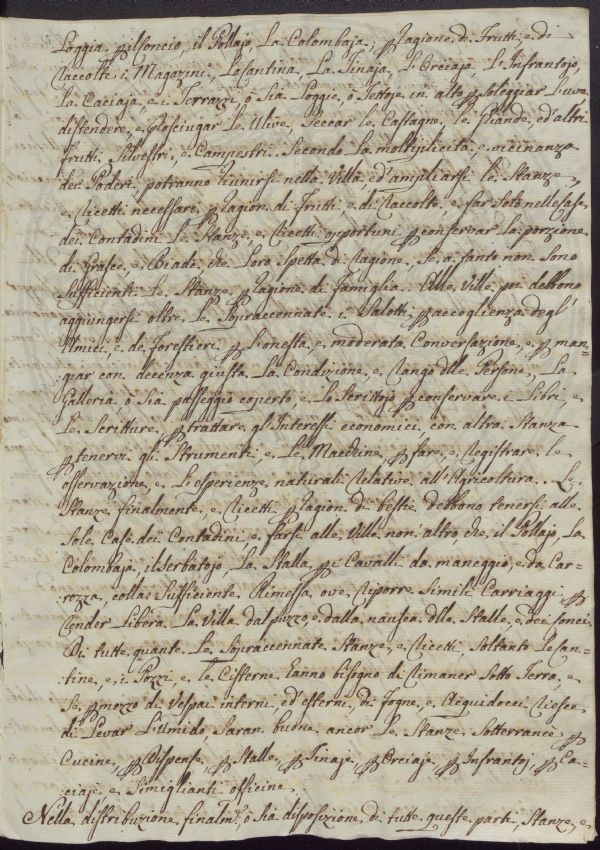 Loggia, p il Concio, il Pollajo, La Colombaja; p Ragione di Frutti, e di
Raccolte i Magazini, La Cantina, La Tinaja, l'Orciaja l'Infrantojo,
La Caciaja, e i Terrazzi, o sia Loggie, o Tettoje in alto p soleggiar l'uve
distendere, e Prosciugar le Ulive, Seccar le Castagne, le Ghiande, ed altri
frutti Silvestri, e Campestri. Secondo la moltiplicità, e vicinanza
dei Poderi, potranno riunirsi nella Villa, ed ampliarsi le Stanze,
e Ricetti necessarj p Ragion di Frutti, e di Raccolte, e far solo nelle Case
dei Contadini le Stanze, e Ricetti opportuni p conservar la porzione
di Grasce, e Biade, che loro spetta di Ragione, se a tanto non sono
sufficienti le Stanze p Ragione di famiglia. Alle Ville poi debbono
aggiungersi oltre le Sopraccennate i Salotti p accoglienza degl'
Amici, e de Forestieri p onesta, e moderata Conversazione, e p man=
giar con decenza giusta la Condizione, e Rango dlle Persone, La
Galleria, o sia passeggio coperto e lo Scrittojo p conservare i Libri, e
le Scritture, p trattare gl'Interessi economici con altra Stanza
p tenervi gli Strumenti, e le Macchine p fare, e Registrare le
osservazioni, e l'esperienze naturali Relative all'Agricoltura. Le
Stanze finalmente, e Ricetti p Ragion di bestie debbono tenersi alle
sole Case dei Contadini e farsi alle Ville non altro, che il Pollajo, La
Colombaja, il Serbatojo, La Stalla p i Cavalli da maneggio, e da Car=
:rozza, colla sufficiente Rimessa ove Riporre simili Carriaggi p
Render libera la Villa dal puzzo, e dalla nausea dlle Stalle, e dei Conci.
Di tutte quante le Sopraccennate Stanze, e Ricetti, soltanto le Can=
:tine, e i Pozzi, e le Cisterne hanno bisogno di Rimaner sotto Terra, e
se p mezzo di Vespai interni, ed esterni, di fogne, e Acquidocci Riesce
di levar l'umido saran buone ancor le Stanze sotterranee p
Cucine, p Dispense, p Stalle, p Tinaje, p Orciaje, p Infrantoj, p Ca=
:ciaje e simiglianti officine.
Nella distribuzione finalmte, o sia disposizione di tutte queste parti, Stanze, e